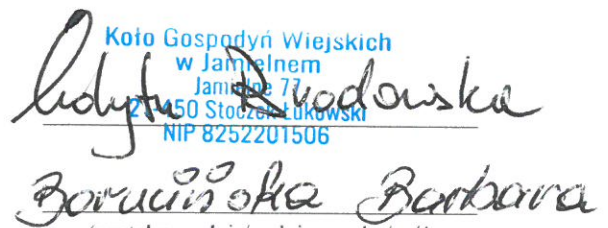 Koło Gospodyń Wiejskich
w Jamielnem
Jamielne 77
21-450 Stoczek Łukowski
NIP 8252201506
Edyta Brodowska
Borucińska Barbara